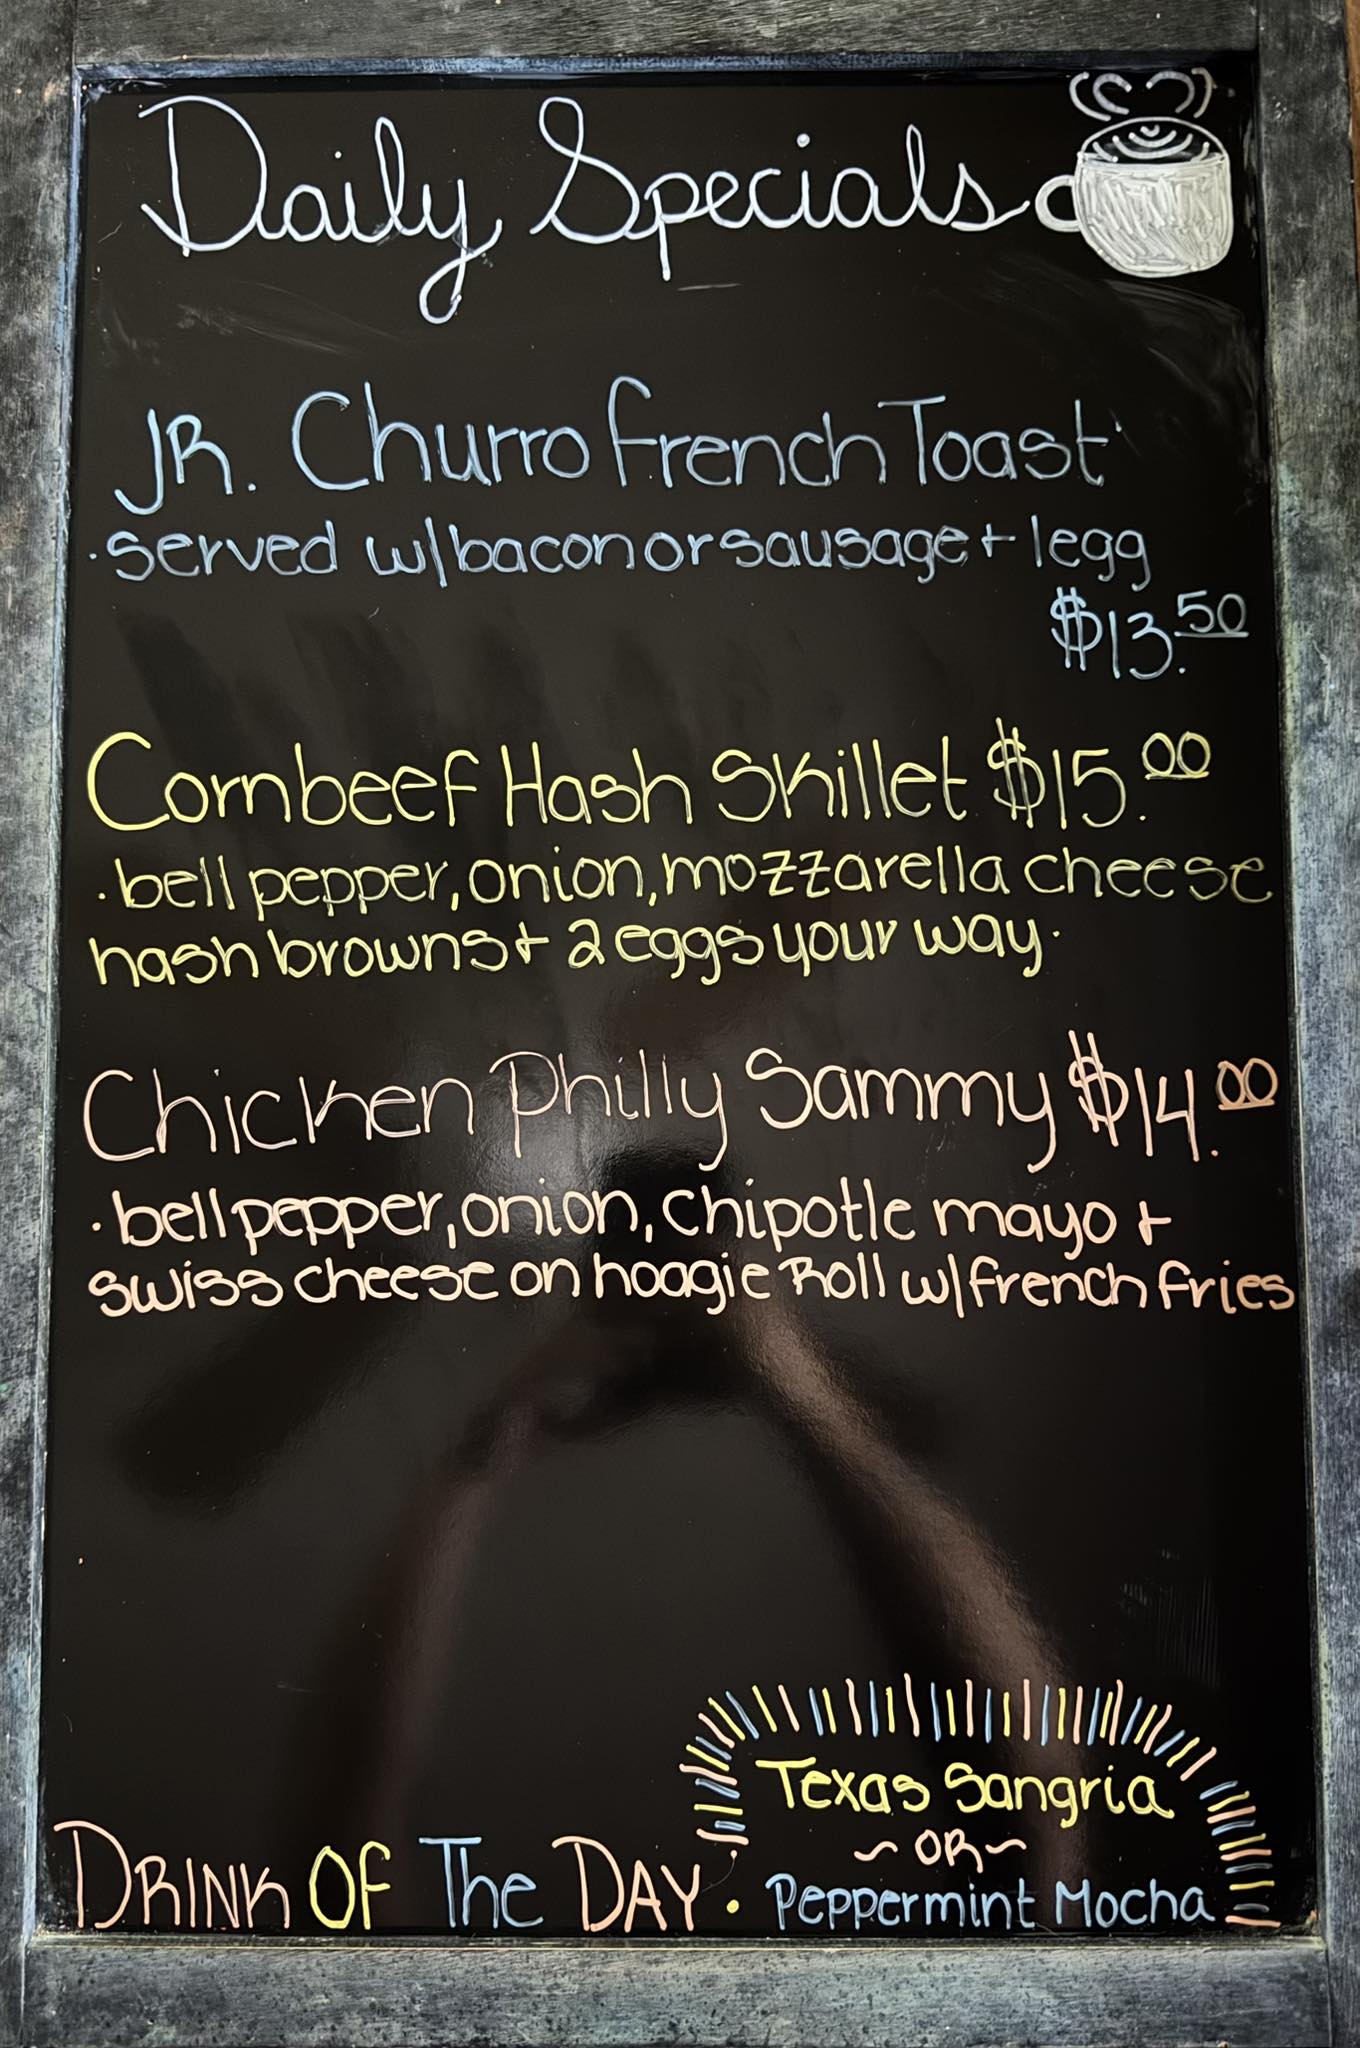 Daily Specials
JR. Churro French Toast
·served w/bacon or sausage + 1 egg
$13.50
Cornbeef Hash Skillet $15.00
·bell pepper, onion, mozzarella cheese
hash browns + 2 eggs your way.
Chicken Philly Sammy $14.00
·bell pepper, onion, chipotle mayo +
swiss cheese on hoagie Roll w/french fries
Texas Sangria
~OR~
DRINK OF The DAY· Peppermint Mocha